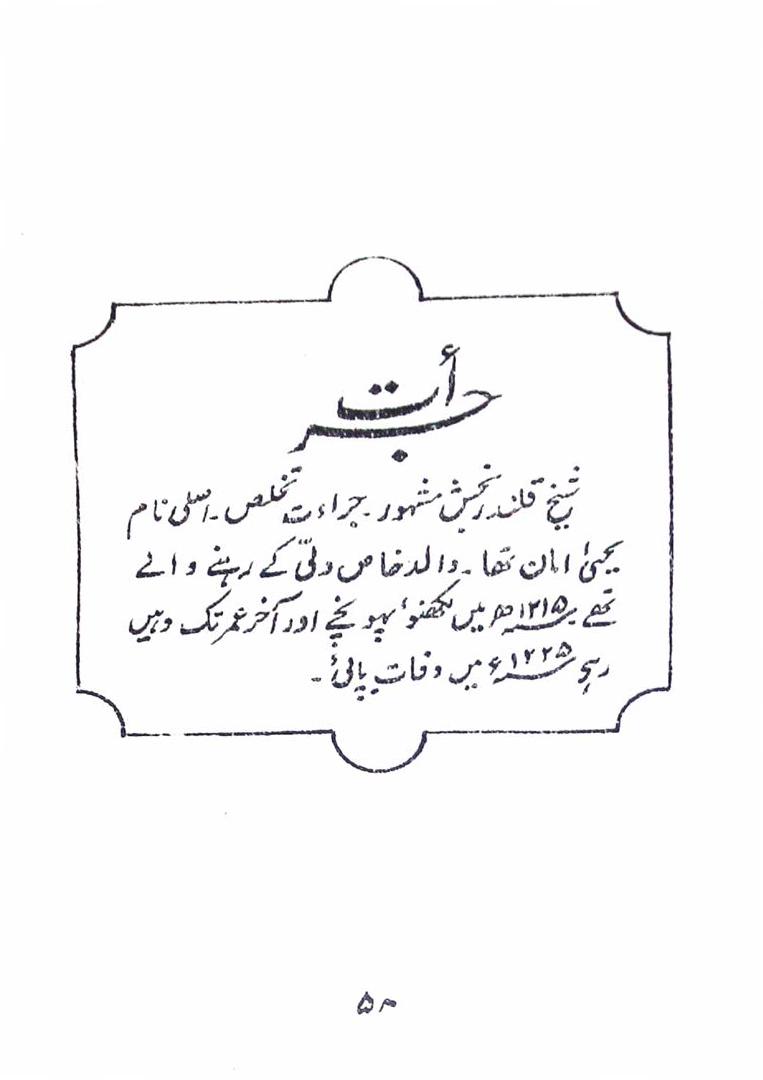 جرأت
شیخ قلندر بخش مشہور۔ جراءت تخلص۔ اصلی نام
یحییٰ امان تھا۔ والد خاص دلّی کے رہنے والے
تھے ۱۲۱۵ھ میں لکھنوٴ پہونچے اور آخر عمر تک وہیں
رہے ۱۲۲۵ء میں وفات پائی۔
۵۸